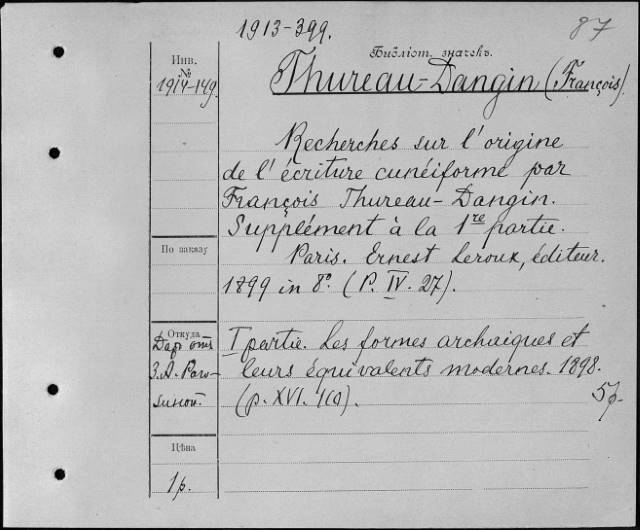 1913-399.
87
Библіот. значекъ.
Инв.
№
1914-149.
Thureau-Dangin (François).
Recherches sur l'origine
de l'écriture cunéiforme par
François Thureau-Dangin.
Supplément à la 1re partie.
Paris. Ernest Leroux, éditeur.
1899 in 8º (P. IV. 27).
По заказу
Откуда
Даръ отъ
З.А. Раго-
I partie. Les formes archaiques et
leurs équivalents modernes. 1898.
(p. XVI.
5р.
Цѣна
1р.